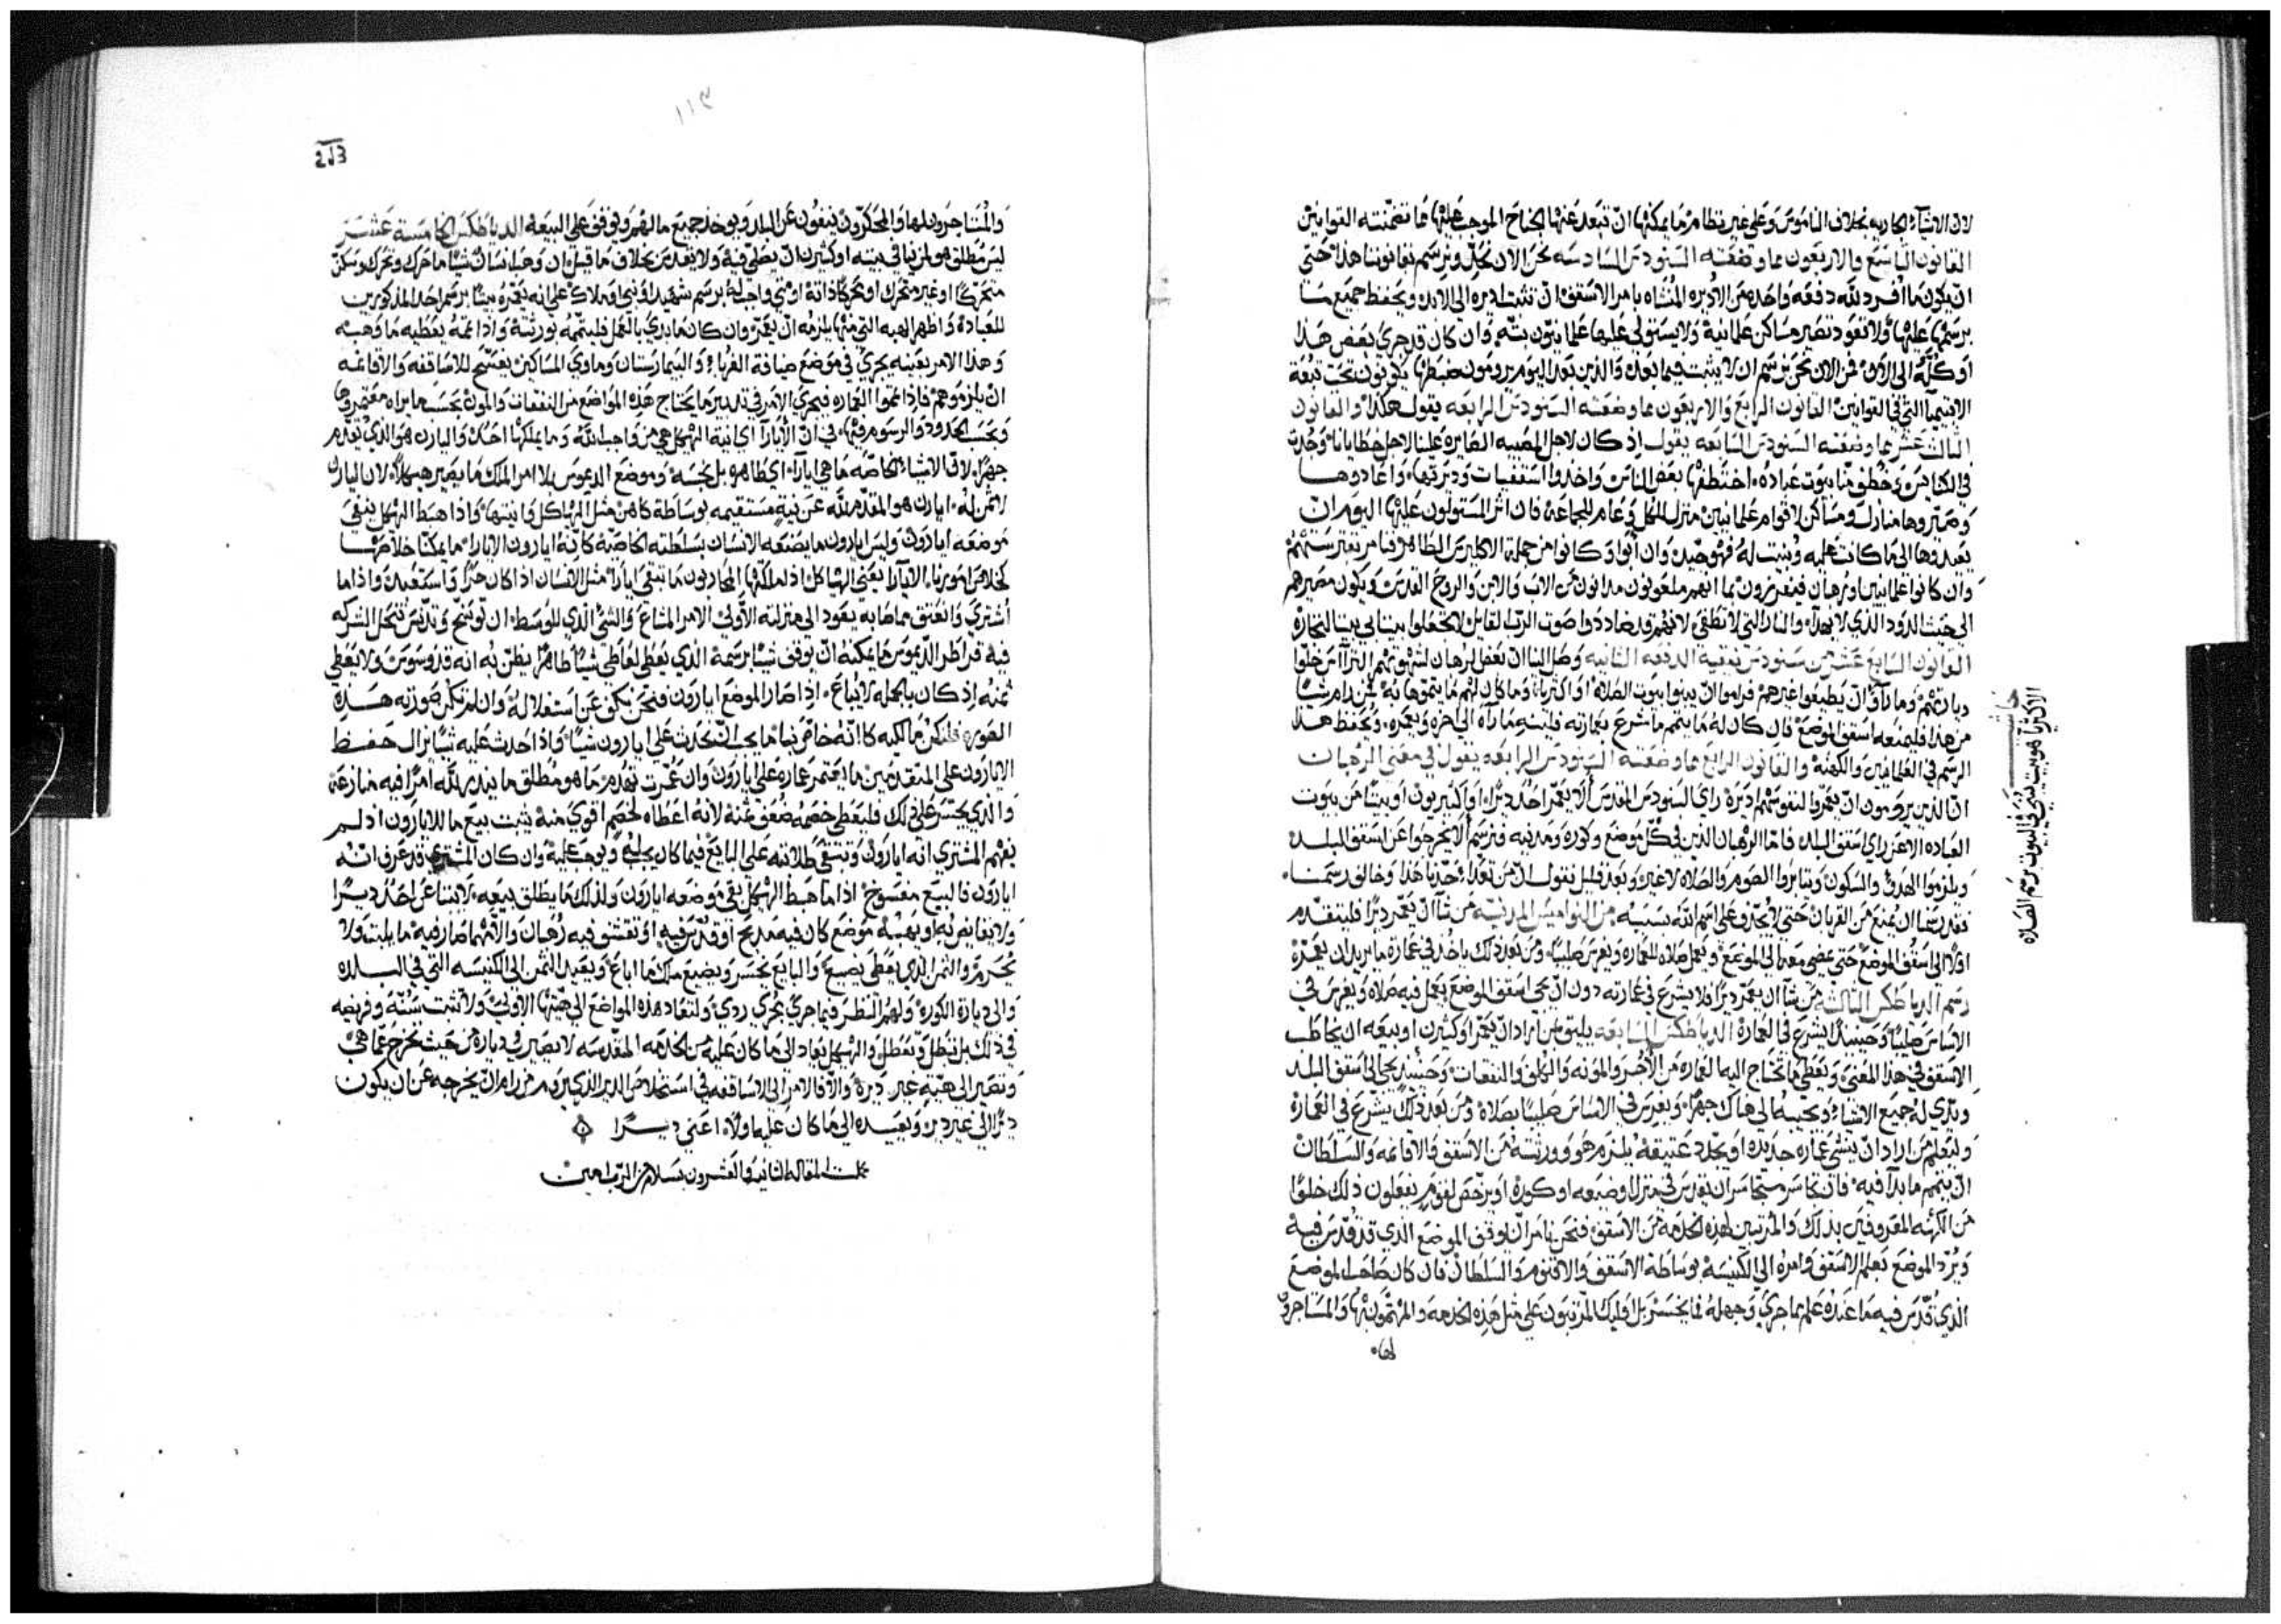 لان الاشياء الجاريه بخلاف الناموس وعلى غير نظام ما يمكنها ان تبعد عنها الجناح الموجب عليها مما تضمنته القوانين
القانون التاسع والاربعون مما وضعته السنودس السادسه نحن الان نجل ونرسم تقانوننا هذا حتى
ان يكون ما افرد لله دفعه واحده من الاديره المنشاه بامر الاسقف ان تثبت اديره الى الابد ويحفظ جميع ما
برسمها عليها ولا تعود تصير مساكن علمانية ولا يستولي عليها علمانيون بته وان كان قد جرى بعض هذا
او كله الى الان فمن الان نحن نرسم ان لا يثبت فيما بعد والذين بعد اليوم يرومون ضبطها يكونون تحت تبعة
القوانين القانون الرابع والاربعون مما وضعته السنودس الرابعه يقول هكذا والقانون
الثالث عشر مما وضعته السنودس السابعه يقول اذ كان لاجل المصيبه الصايره علينا لاجل خطايانا وجدت
بيوت عباده اختطفها بعض الناس واخذوا اسقفيات وديرتها واعادوها
وصيروها منازل ومساكن لاقوام علمانيين فان اثر المستولون عليها اليوم ان
يعيدوها الى ما كانت عليه وتثبت له فهو جيد وان ابوا وكانوا من جملة الاكليرس الطاهر
وان كانوا علمانيين او رهبان فيفرزون بما انهم ملعونون مدانون من الاب والابن والروح القدس ويكون مصيرهم
الى حيث الدود الذي لا يهدا والنار التي لا تطفى لانهم قد ضاددوا صوت الرب القايل لا تجعلوا بيت ابي بيت التجاره
القانون السابع عشر من سنودس نيقية الدفعه الثانيه وصل الينا ان بعض الرهبان لشهوتهم التراس خلوا
ديارتهم وما راوا ان يطيعوا غيرهم فراموا ان يبنوا بيوت الصلاة او اكتريا وما كان لهم ما يتموها به فمن رام شيا
من هذا فليمنعه اسقف الموضع فان كان له ما يتمم ما شرع بعمارته فلينته ما راه الى اخره ويعمره ويحفظ هذا
الرسم في العلمانيين والكهنه والقانون الرابع مما وضعته السنودس الرابعه يقول في معنى الرهبان
ان الذين يرومون ان يعمروا لنفوسهم ديرة راي السنودس المقدس الا يعمر احد ديرا او اكتيريون او بيتا من بيوت
العباده الا عن راي اسقف البلد فاما الرهبان الذين في كل موضع وكوره ومدينه فنرسم الا يخرجوا عن اسقف البلد
ويلزموا الهدو والسكون ويثابروا الصوم والصلاه لا غير وبعد قليل نقول ان من تعدا حدنا هذا وخالف رسمنا
فقد رسمنا ان يمنع من القربان حتى لا يجدف على اسم الله بسببه من النواميس المدنيه من شا ان يعمر ديرا فليتقدم
اولا الى اسقف الموضع حتى يمضي معه الى الموضع ويعمل صلاه للعماره ويغرس صليبا ومن بعد ذلك ياخذ في عمارة ما يريد ان يعمره
رسم الدياطكس الثالثه من شا ان يعمر ديرا فلا يشرع في عمارته دون ان يجي اسقف الموضع يعمل فيه صلاه ويغرس في
الاساس صليبا وحينيذ يشرع في العمارة الدياطكس السابعه يليق بمن اراد ان يعمر او كثيرن او بيعه ان يخاطب
الاسقف في هذا المعنى ويعطي ما تحتاج اليه العماره من الاجر والمؤنه والكلف والنفقات وحينيذ يجي الى اسقف البلد
ويري له جميع الاشياء ويجيبه الى هناك جهرا ويغرس في الاساس صليبا بصلاة ومن بعد ذلك يشرع في العمارة
وليعلم من اراد ان ينشي عماره جديده او يجدد عتيقة يلزم هو وورثته من الاسقف والاقانمه والسلطان
ان يتمم ما بدا فيه فان تجاسر متجاسر ان يقدس في منزل او ضيعه او كوره او يرخص لقوم يفعلون ذلك خلوا
من الكهنه المعروفين بذلك والمرتبين لهذه الخدمة من الاسقف فنحن نامر ان يوقف الموضع الذي قد قدس فيه
ويرد الموضع بعلم الاسقف وامره الى الكنيسة بوساطة الاسقف والاقنوم والسلطان فان كان صاحب الموضع
الذي قدس فيه ما عنده علم بما جرى وجهله فما يخسر بل اوليك المرتبون على مثل هذه الخدمه والمهتمون بها والمستاجرون
حاشيه
الاكتريا هو بيت يبنى في البيوت برسم الصلاه
١١٣
والمستاجرون لها والمحكرون ينفون عن البلد ويوخذ جميع مالهم ويوقف على البيعه الدياطكس الخامسة عشر
ليس مطلق هو لمن بنا في بيته او كثيرن ان يصلي فيه ولا يقدس بخلاف ما قيل ان وهب انسان شيا ما حرك وتحرك وسكن
متحركا او غير متحرك او متحركا ذاته او شي واجب له برسم شهيد او نبي او ملاك على انه يعمره بيتا برسم احد المذكورين
للعبادة واظهر الهبه التي منها يلزمه ان يعمر وان كان ما بدي بالعمل فليتممه بورثته واذا تمه يعطيه ما وهبه
وهذا الامر بعينه يجري في موضع ضيافة الغرباء والبيمارستان وماوى المساكين يفسح للاساقفه والاقانمه
ان يلزموهم فاذا تموا العماره فيجري الامر في تدبير ما يحتاج هذه المواضع من النفقات والمون بحسب ما يراه معتمروها
وبحسب الحدود والرسوم فيها في ان الايارا اي انية الهيكل هي من واجب الله وما يملكها احد والياري هو الذي تقدم
جهرا لان الاشياء الخاصه ما هي ايارا اي طاهره بل نجسه وموضع الديموس بلا امر الملك ما يصير هيكلا لان اليارن
لا ثمن له ايارن هو المقدم لله عن نية مستقيمه بوساطة كاهن مثل الهياكل وانيتها واذا هبط الهيكل يبقى
موضعه ايارون وليس ايارون ما يصنعه الانسان بسلطته الخاصه كانه ايارون الايارا ما يمكننا خلاصها
الايارا يعني الهياكل اذا ملكها المحاربون ما تبقى ايارا مثل الانسان اذا كان حرا واستعبد واذا ما
اشتري وانعتق مما صابه يعود الى منزلته الاولى الامر المشاع والشي الذي للوسط ان توسخ وتدنس تنحل الشركه
فيه اراطر الديموس ما يمكنه ان يوقف شيا برسمه الذي يعطي لعاطي شيا طاهرا يظن به انه قدوسوس ولا يعطي
ثمنه اذ كان بالجمله لا يباع اذا صار الموضع ايارون فنحن نكف عن استغلاله وان لم تكن صورته هذه
الصوره فلنكن مالكيه كانه خاص بنا ما يجب ان نحدث على ايارون شيا واذا احدث عليه شيا يزال حفظ
الايارون على المتقدمين ما يعتمر عمارة على ايارون وان عمرت تهدم ما هو مطلق ما ينذر لله امرا فيه منازعه
والذي يجسر على ذلك فليعطي خصمه ضعف ثمنه لانه اعطاه لخصم اقوى منه يثبت بيع ما للايارون اذ لم
يفهم المشتري انه ايارون وتبقى طلابته على البايع فيما كان يجب له ويوجب عليه وان كان المشتري قد عرف انه
ايارون فالبيع مفسوخ اذا ما هبط الهيكل يبقى موضعه ايارون ولذلك ما يطلق بيعه لا يبتاع احد ديرا
ولا يقايض به او يهبه موضع كان فيه مذبح او قدس فيه او تقشف فيه رهبان والاثم صار فيه ما يلبث ولا
يحرم والثمن الذي يعطى يضيع والبايع يخسر ويضيع مثل ما اباع ويعيد الثمن الى الكنيسه التي في البلده
والى ديارة الكورة ولهم النظر فيما جرى مجرى ردي ولتعاد هذه المواضع الى هيئتها الاولى ولا تثبت سنة وفريضه
في ذلك بل تبطل وتعطل والهيكل يعاد الى ما كان عليه من الخدمه المقدسه لا يصير في ديارة من حيث تخرج عما هي
وتصير الى هيئة غير ديرة والا فالامر الى الاساقفه في استخلاص الدير الذي يريد من رام ان يخرجه عن ان يكون
ديرا الى غير دير ويعيده الى ما كان عليه اولا اعني ديرا
كملت المقاله الثانيه والعشرون بسلام من الرب امين